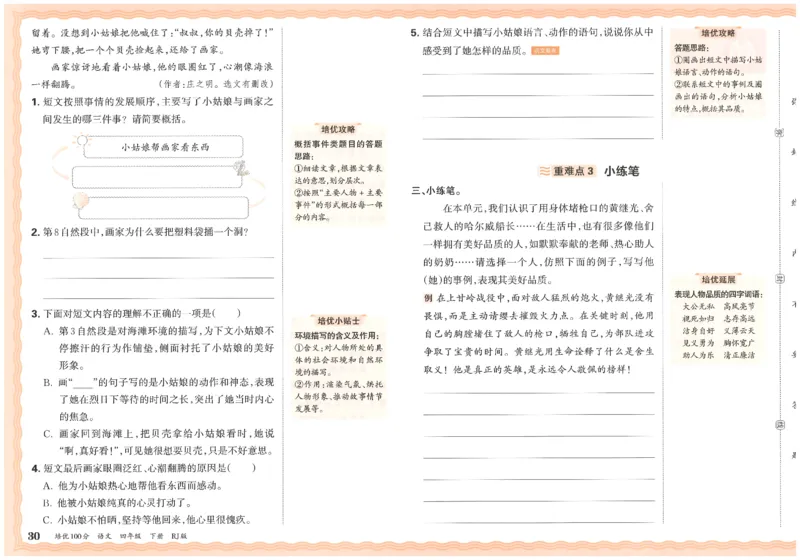 留着。没想到小姑娘把他喊住了：“叔叔，你的贝壳掉了！”
她弯下腰，把一个个贝壳拾起来，还给了画家。
画家惊讶地看着小姑娘，他的眼圈红了，心潮像海浪
一样翻腾。（作者：庄之明。选文有删改）
1. 短文按照事情的发展顺序，主要写了小姑娘与画家之
间发生的哪三件事？请简要概括。
小姑娘帮画家看东西
2. 第8自然段中，画家为什么要把塑料袋捅一个洞？
3. 下面对短文内容的理解不正确的一项是（　　）
A. 第3自然段是对海滩环境的描写，为下文小姑娘不
停擦汗的行为作铺垫，侧面衬托了小姑娘的美好
形象。
B. 画“____”的句子写的是小姑娘的动作和神态，表现
了她在烈日下等待的时间之长，突出了她当时内心
的焦急。
C. 画家回到海滩上，把贝壳拿给小姑娘看时，她说
“啊，真好看！”，可见她很想要贝壳，只是不好意思。
4. 短文最后画家眼圈泛红、心潮翻腾的原因是（　　）
A. 他为小姑娘热心地帮他看东西而感动。
B. 他被小姑娘纯真的心灵打动了。
C. 小姑娘不怕晒，坚持等他回来，他心里很愧疚。
30 培优100分 语文 四年级 下册 RJ版
培优攻略
概括事件类题目的答题
思路：
①细读文章，根据文章表
达的意思，划分层次。
②按照“主要人物+主要
事件”的形式概括每一部
分的内容。
培优小贴士
环境描写的含义及作用：
①含义：对人物所处的具
体的社会环境和自然环
境的描写。
②作用：渲染气氛、烘托
人物形象、推动故事情节
发展等。
5. 结合短文中描写小姑娘语言、动作的语句，说说你从中
感受到了她怎样的品质。
重难点3 小练笔
三、小练笔。
在本单元，我们认识了用身体堵枪口的黄继光、舍
己救人的哈尔威船长……在生活中，也有很多像他们
一样拥有美好品质的人，如默默奉献的老师、热心助人
的奶奶……请选择一个人，仿照下面的例子，写写他
（她）的事例，表现其美好品质。
例 在上甘岭战役中，面对敌人猛烈的炮火，黄继光没有
畏惧，而是主动请缨去摧毁火力点。在关键时刻，他用
自己的胸膛堵住了敌人的枪口，牺牲自己，为部队进攻
争取了宝贵的时间。黄继光用生命诠释了什么是舍生
取义！他是真正的英雄，是永远令人敬佩的榜样！
培优攻略
答题思路：
①圈画出短文中描写小姑
娘语言、动作的语句。
②联系短文中的事例及圈
画出的语句，分析小姑娘
的特点，概括其品质。
培优延展
表现人物品质的四字词语：
大公无私　高风亮节
视死如归　志存高远
洁身自好　义薄云天
见义勇为　胸怀宽广
助人为乐　清正廉洁